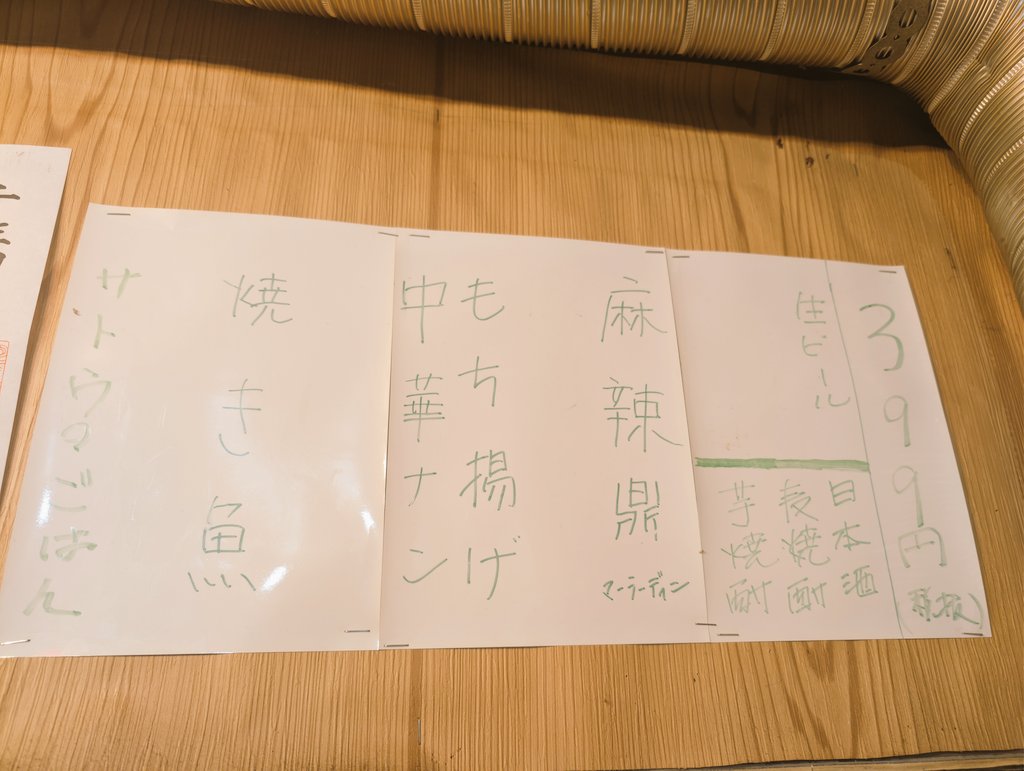 399円(税抜)
生ビール
日本酒
麦焼酎
芋焼酎
麻辣鼎
マーラーディン
もち揚げ
中華ナン
焼き魚
サトウのごはん